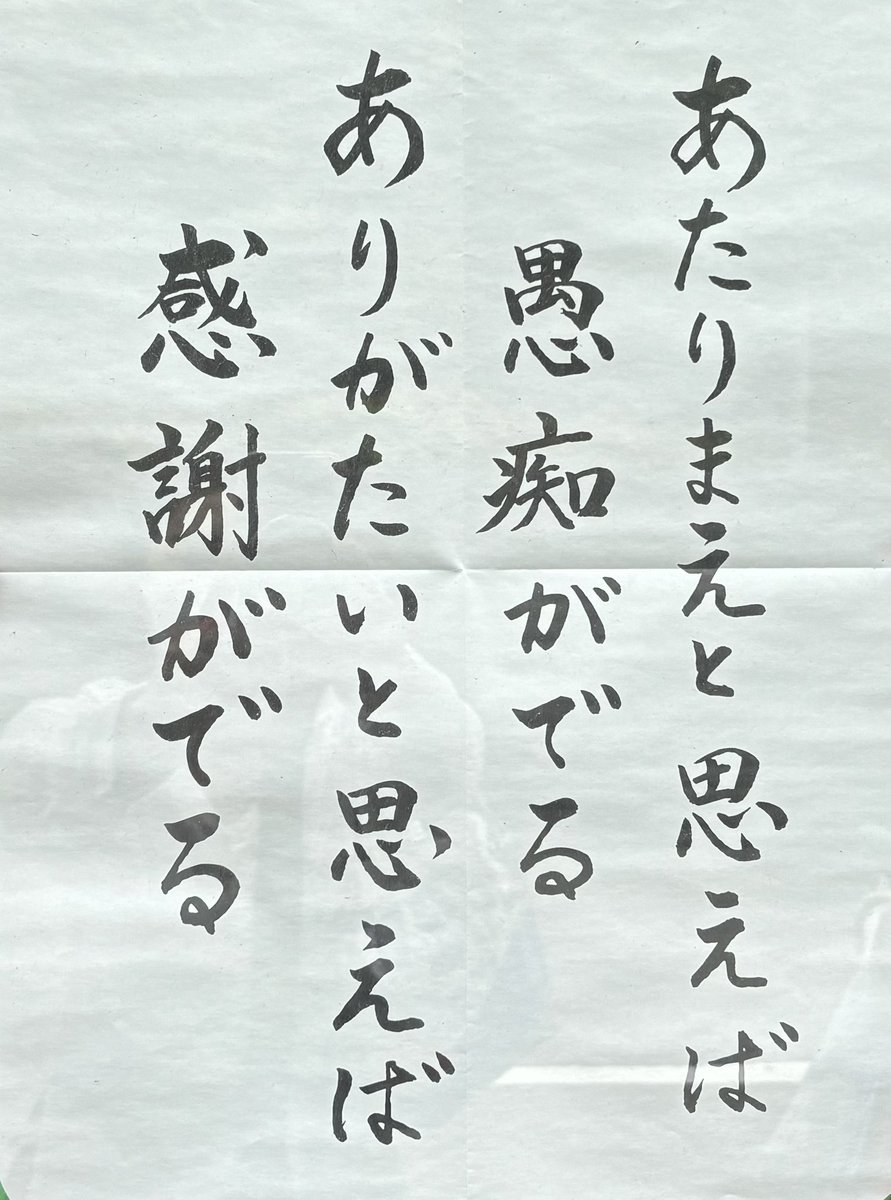 あたりまえと思えば
愚痴がでる
ありがたいと思えば
感謝がでる